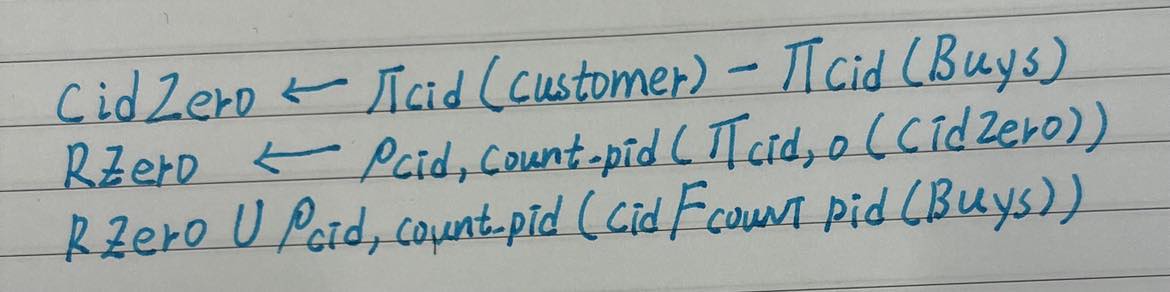 CidZero ← πcid (customer) − πcid (Buys)
RZero ← ρcid, count-pid ( πcid, 0 (CidZero))
RZero ∪ ρcid, count-pid (cid Fcount pid (Buys))